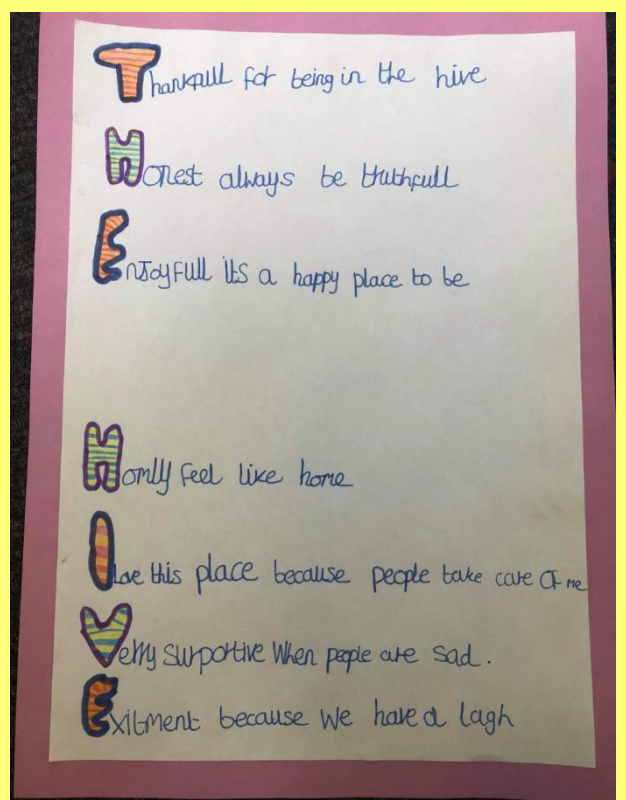 Thankfull for being in the hive
Honest always be truthfull
EnJoyfull its a happy place to be
Homly feel like home
I Love this place because people take care of me
Verry surportive When people are sad.
Exitment because We have a lagh